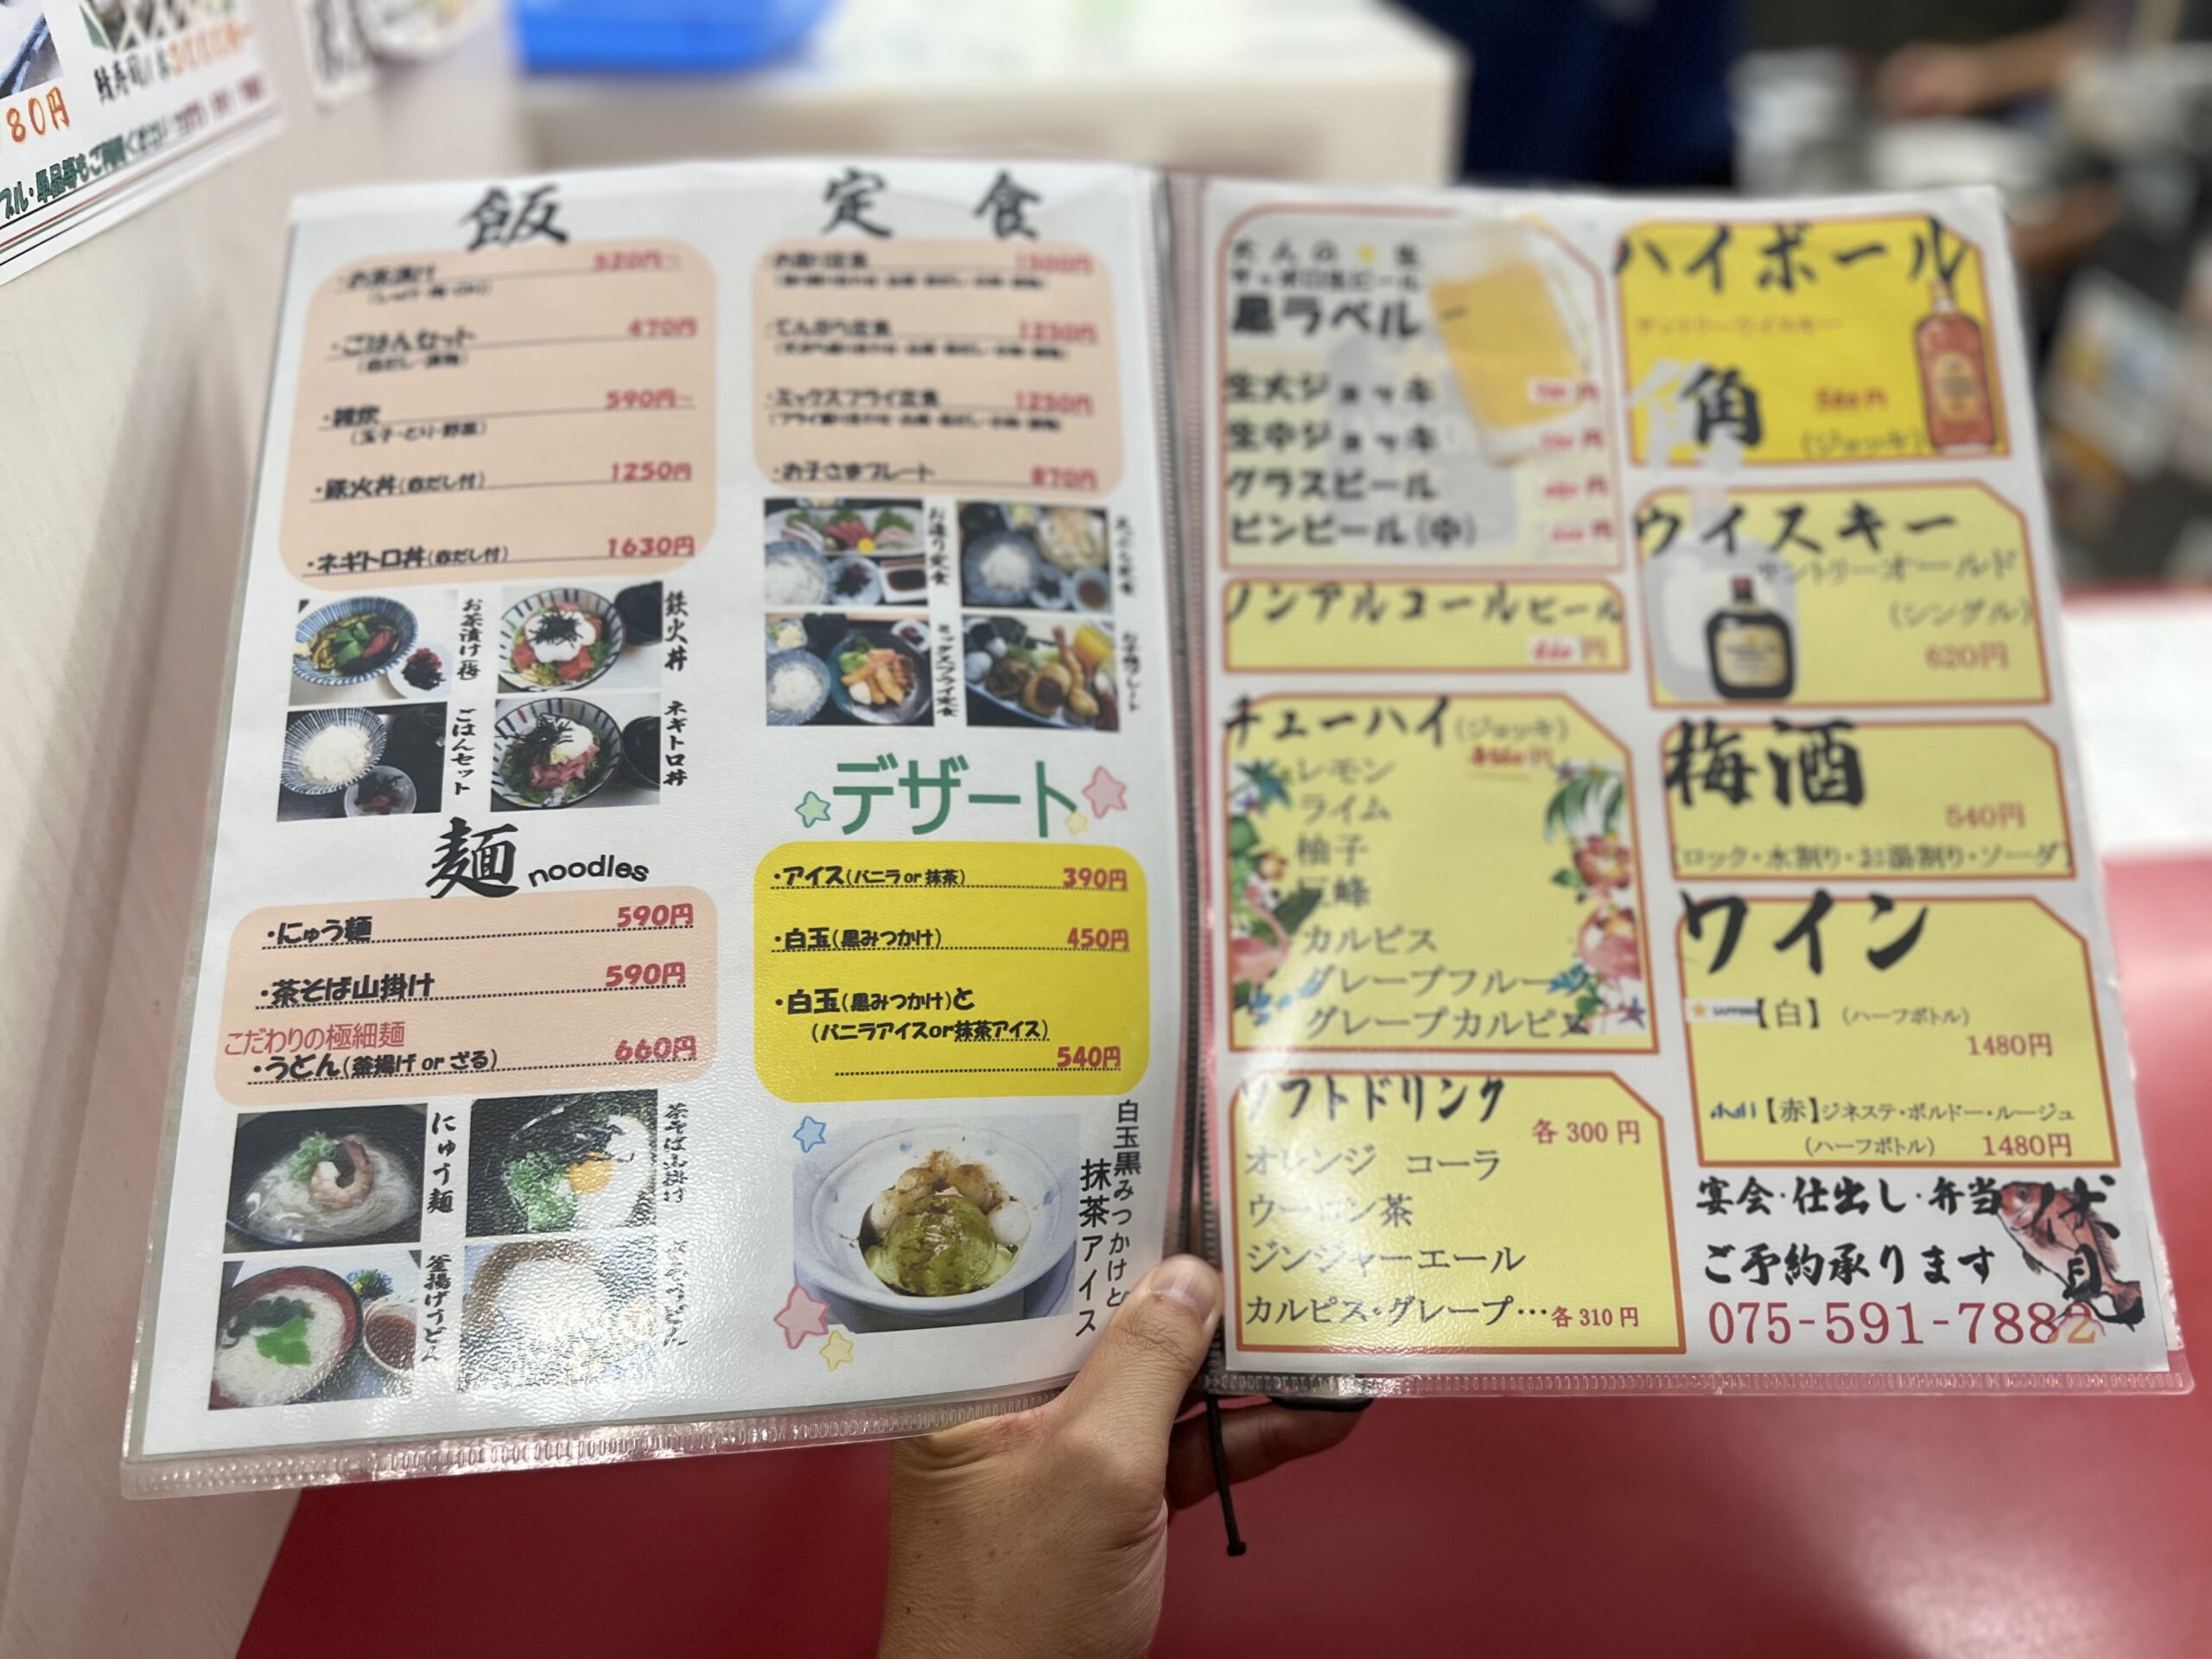 80円
飯
・お茶漬け 520円~
・ごはんセット 470円
(赤だし・漬物)
・雑炊 590円~
(玉子・とり・野菜)
・鉄火丼(赤だし付) 1250円
・ネギトロ丼(赤だし付) 1630円
お茶漬け(梅)
鉄火丼
ごはんセット
ネギトロ丼
麺 noodles
・にゅう麺 590円
・茶そば山掛け 590円
こだわりの極細麺
・うどん(釜揚げ or ざる) 660円
にゅう麺
茶そば山掛け
釜揚げうどん
定食
・お造り定食 1300円
・てんぷら定食 1250円
・ミックスフライ定食 1250円
・お子さまプレート 870円
お造り定食
ミックスフライ定食
デザート
・アイス(バニラ or 抹茶) 390円
・白玉(黒みつかけ) 450円
・白玉(黒みつかけ)と
(バニラアイスor抹茶アイス)
540円
白玉黒みつかけと
抹茶アイス
大人の★生
サッポロ生ビール
黒ラベル
生大ジョッキ
生中ジョッキ
グラスビール
ビンビール(中)
ノンアルコールビール
チューハイ(ジョッキ)
レモン
ライム
柚子
巨峰
カルピス
グレープフルーツ
グレープカルピス
ソフトドリンク
各 300 円
オレンジ コーラ
ウーロン茶
ジンジャーエール
カルピス・グレープ…各 310 円
ハイボール
サントリーウイスキー
角
(ジョッキ)
ウイスキー
サントリーオールド
(シングル)
620円
梅酒
540円
(ロック・水割り・お湯割り・ソーダ)
ワイン
SAPPORO【白】(ハーフボトル)
1480円
Asahi【赤】ジネステ・ボルドー・ルージュ
(ハーフボトル) 1480円
宴会・仕出し・弁当
ご予約承ります
075-591-7882